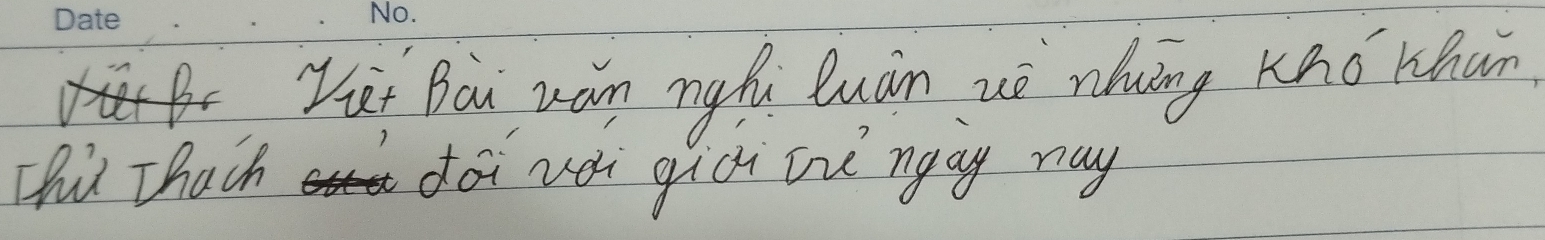 Date . . . No.
Viết Bài văn nghị luận về những khó khăn,
thử thách đối với giới trẻ ngày nay